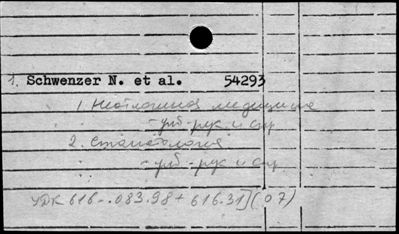 1. Schwenzer N. et al. 54293
1. Неотложная медицина
- учб - рук. и спр
2. Стоматология
- учб - рук и спр
УДК 616-.083.98 + 616.31] (07)